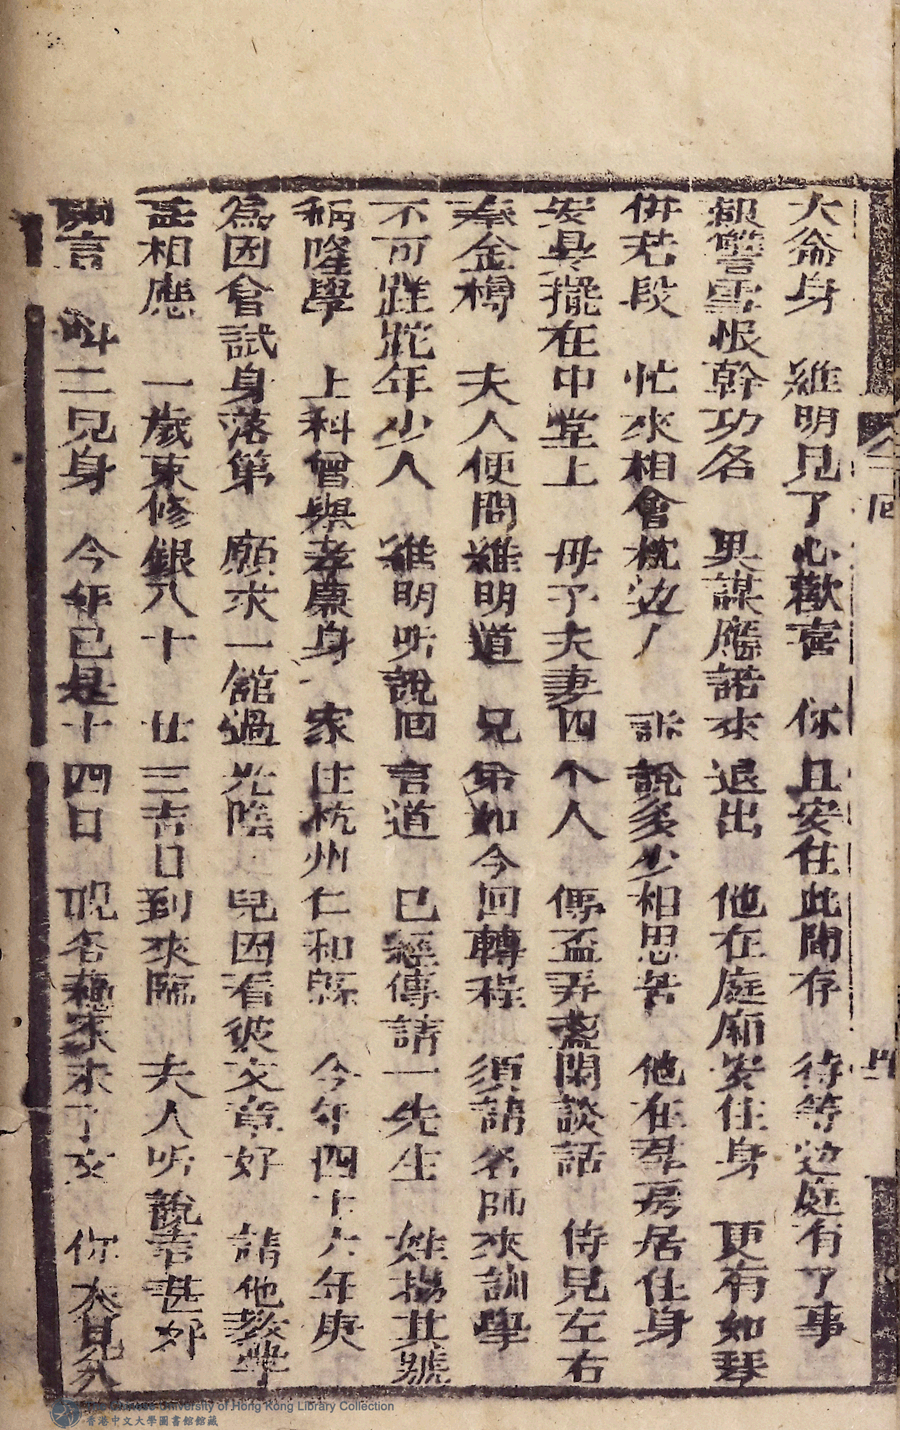 大侖身 維明見了心歡喜 你且安住此間存 待等边庭有了事
報讐雪恨幹功名 異謀應諾來退出 他在庭廂安住身 更有如琴
併若段 忙來相會枕边人 訴說多少相思苦 他在羣房居住身
安具擺在中堂上 母子夫妻四个人 傳盃弄盞閑談話 侍兒左右
奉金樽 夫人便問維明道 兄弟如今回轉程 須請名師來訓學
不可跎跎年少人 維明听說回言道 已經傳請一先生 姓楊其號
稱隆學 上科曾與孝廉身 家住杭州仁和縣 今年四十六年庚
為因會試身落第 願求一館過光陰 兒因看彼文章好 請他教學
甚相應 一歲束修銀八十 廿三吉日到來臨 夫人听說言甚好
開言 叫二兒身 今年已是十四日 來了文 你大兄
仝二回
四
The Chinese University of Hong Kong Library Collection
香港中文大學圖書館館藏